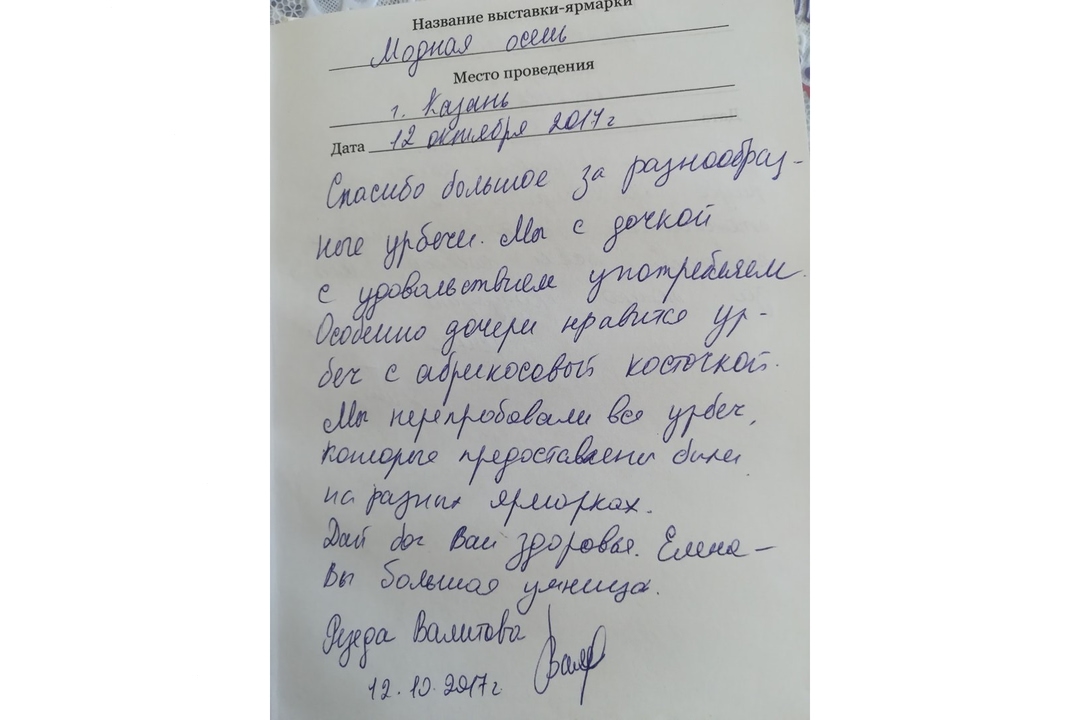 Название выставки-ярмарки
Модная осень
Место проведения
г. Казань
Дата 12 октября 2017г
Спасибо большое за разнообраз-
ные урбечи. Мы с дочкой
с удовольствием употребляем.
Особенно дочери нравится ур-
беч с абрикосовый косточкой.
Мы перепробовали все урбеч,
которые предоставлены были
на разных ярморках.
Дай бог Вам здоровья. Елена –
Вы большая умница.
Рузеда Валитова
12.10.2017г